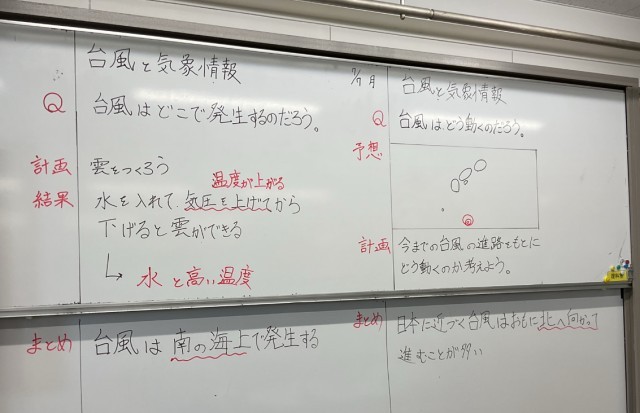 台風と気象情報
Q 台風はどこで発生するのだろう。
計画 雲をつくろう
温度が上がる
結果 水を入れて、気圧を上げてから
下げると雲ができる
↳ 水と高い温度
まとめ 台風は南の海上で発生する
月
台風と気象情報
Q 台風はどう動くのだろう。
予想
計画 今までの台風の進路をもとに
どう動くのか考えよう。
まとめ 日本に近づく台風はおもに北へ向かって
進むことが多い